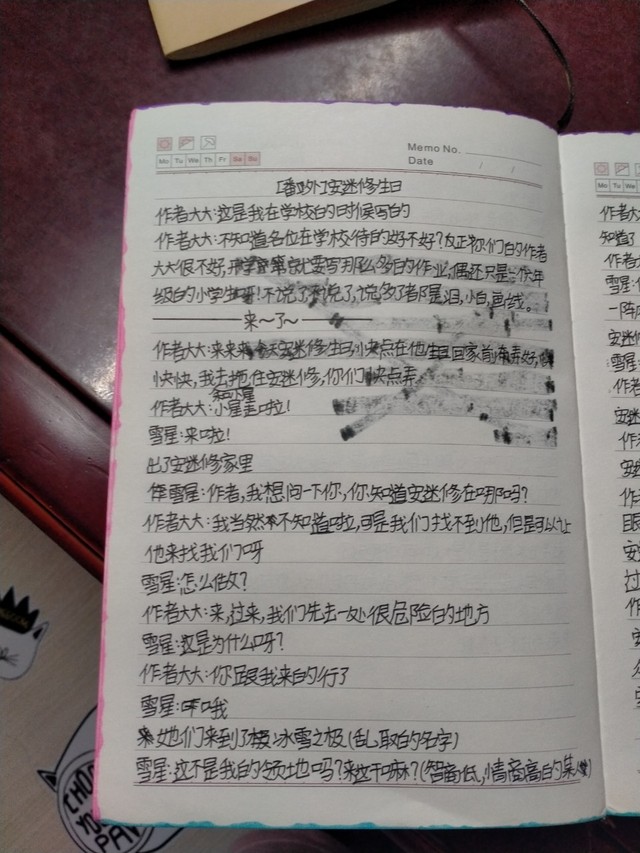 Memo No.
Mo Tu We Th Fr Sa Su
Date / /
[番外]安迷修生日
作者大大:这是我在学校的时候写的
作者大大:不知道各位在学校待的好不好?反正你们的作者
大大很不好,就要写那么多的作业,偶还只是一个六年
级的小学生呀!不说了不说了,说多了都是泪,小白,画线。
来~了~
作者大大:来来来 今天安迷修生日,快点在他生日回家前弄好,
快快,我去拖住安迷修,你们快点弄
作者大大:小星星啦!
雪星:来啦!
出了安迷修家里
雪星:作者,我想问一下你,你知道安迷修在哪吗?
作者大大:我当然不知道啦,可是我们找不到他,但是可以让
他来找我们呀
雪星:怎么做?
作者大大:来,过来,我们先去一处很危险的地方
雪星:这是为什么呀?
作者大大:你跟我来的行了
雪星:哦
她们来到了冰雪之极(乱取的名字)
雪星:这不是我的领地吗?来这干嘛?(智商低,情商高的某人)
Mo Tu We
作者大
知道了
作者大
雪星:
一阵
安迷
雪星:
作者
安迷
作
安迷
作
眼
安
过
作
雪
CHOO
YO
PAW